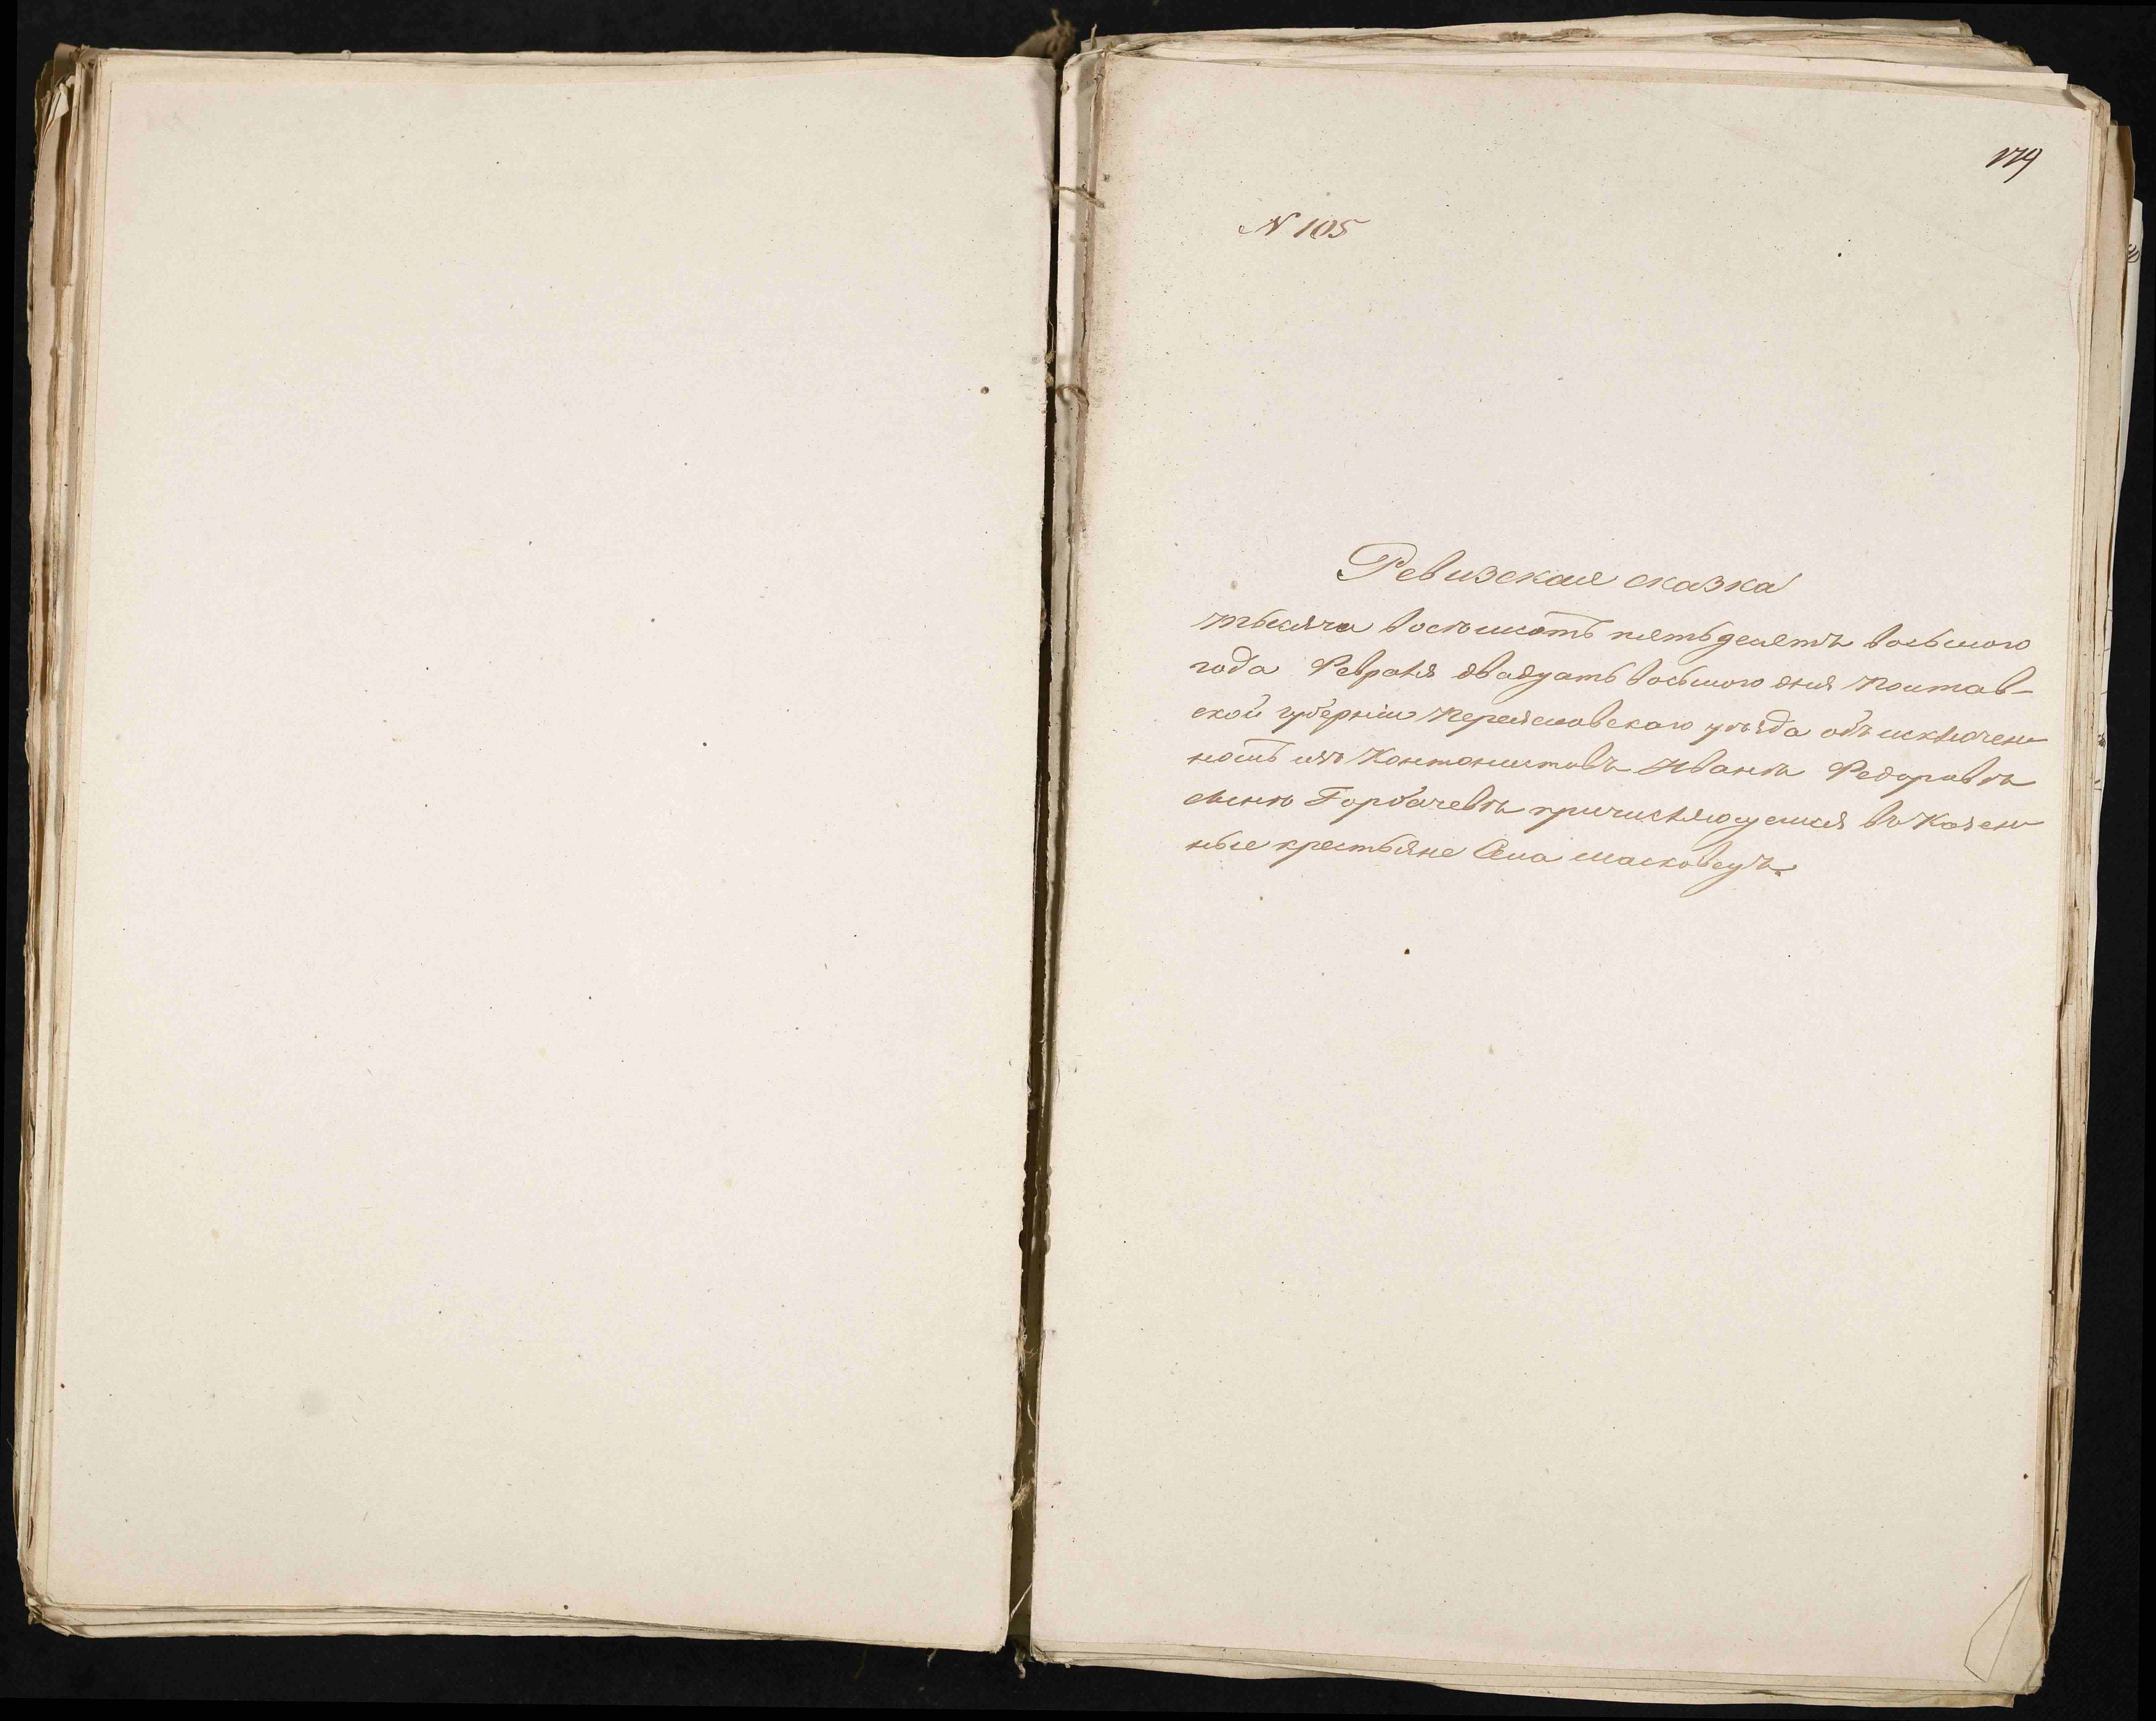 179
N 105
Ревизская сказка
тысяча восемьсотъ пятьдесятъ восьмого
года Февраля двадцать восьмого дня Полтав-
ской губерніи Переяславскаго уѣзда объ исключен
номъ изъ Кантонистовъ Иванѣ Федоровѣ
сынѣ Горбачевѣ причисляющемся въ Казен
ные крестьяне Села